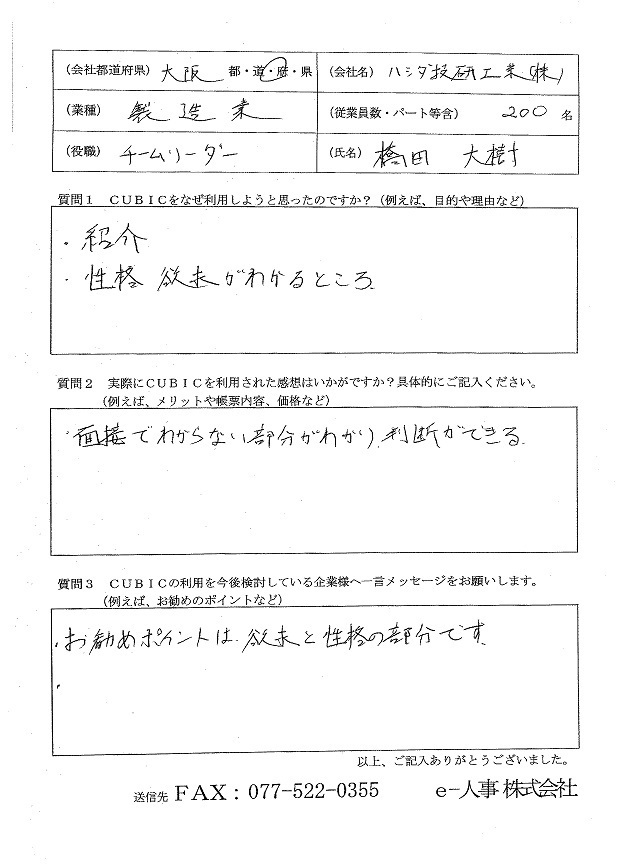 （会社都道府県） 大阪 都・道・府・県 （会社名） ハシダ技研工業(株)
（業種） 製造業 （従業員数・パート等含） 200 名
（役職） チームリーダー （氏名） 橋田 大樹
質問１ ＣＵＢＩＣをなぜ利用しようと思ったのですか？（例えば、目的や理由など）
・紹介
・性格 欲求がわかるところ
質問２ 実際にＣＵＢＩＣを利用された感想はいかがですか？具体的にご記入ください。
（例えば、メリットや帳票内容、価格など）
・面接でわからない部分がわかり、判断ができる。
質問３ ＣＵＢＩＣの利用を今後検討している企業様へ一言メッセージをお願いします。
（例えば、お勧めのポイントなど）
・お勧めポイントは、欲求と性格の部分です。
・
以上、ご記入ありがとうございました。
送信先 ＦＡＸ：077-522-0355 e-人事 株式会社